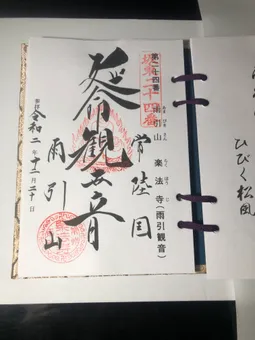 ひびく松風
第二十四番 雨引山 楽法寺(雨引観音)
坂東二十四番
常陸国
延命観世音
雨引山
奉拝 令和二年十二月二十日